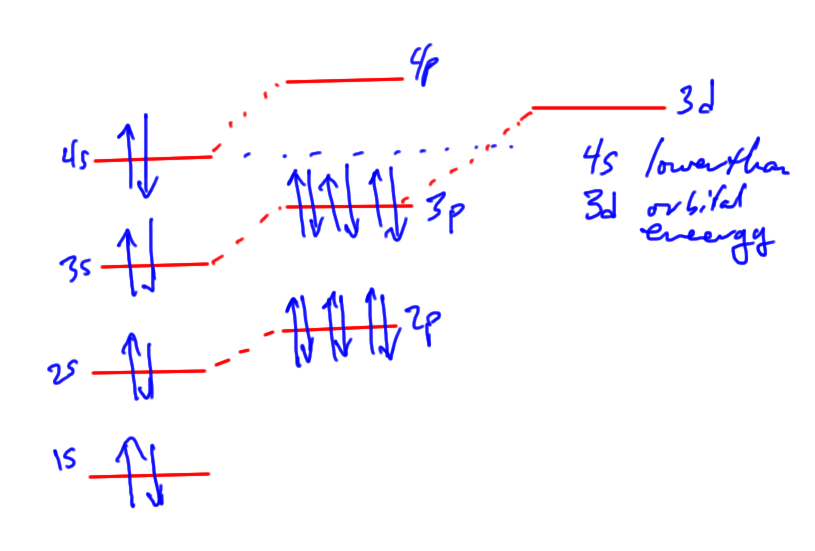 4p
3d
4s
4s lower than
3d orbital
energy
3p
3s
2p
2s
1s